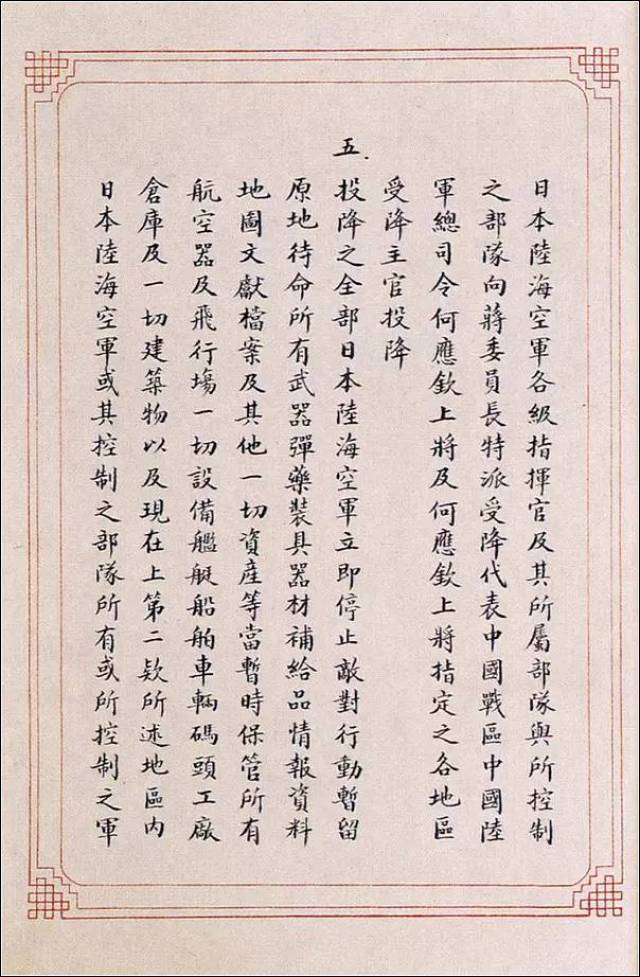 日本陸海空軍各級指揮官及其所屬部隊與所控制
之部隊向蔣委員長特派受降代表中國戰區中國陸
軍總司令何應欽上將及何應欽上將指定之各地區
受降主官投降
五.投降之全部日本陸海空軍立即停止敵對行動暫留
原地待命所有武器彈藥裝具器材補給品情報資料
地圖文獻檔案及其他一切資產等當暫時保管所有
航空器及飛行場一切設備艦艇船舶車輛碼頭工廠
倉庫及一切建築物以及現在上第二款所述地區内
日本陸海空軍或其控制之部隊所有或所控制之軍